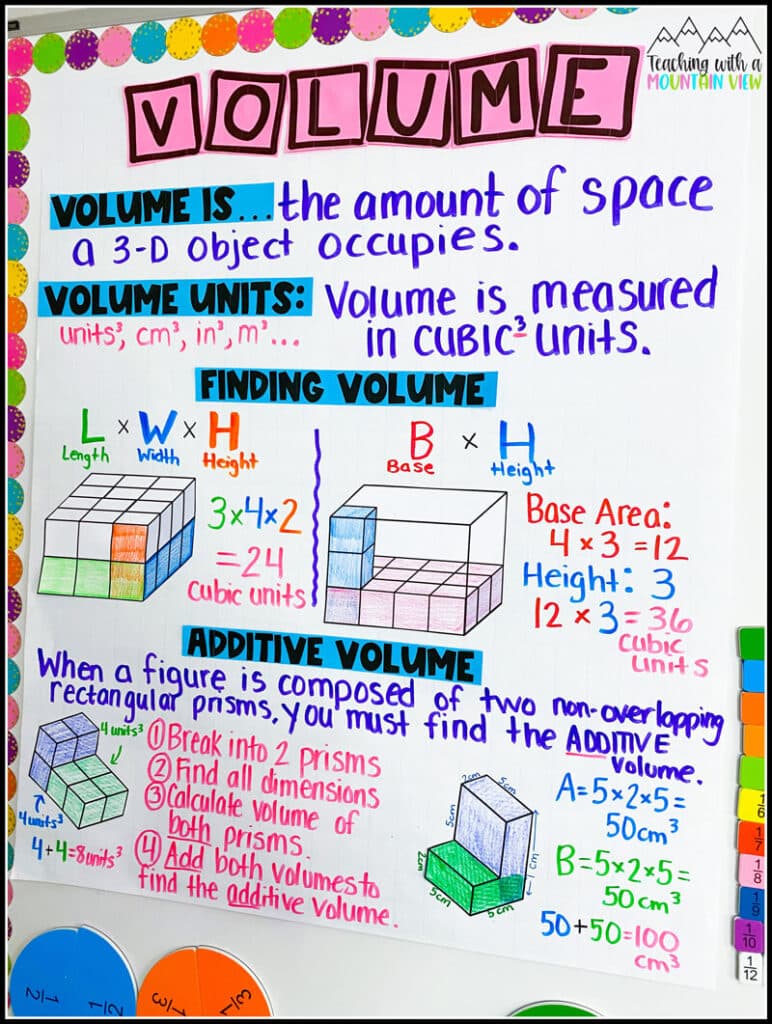 Teaching with a
MOUNTAIN VIEW
VOLUME
VOLUME IS... the amount of space
a 3-D object occupies.
VOLUME UNITS: Volume is measured
units³, cm³, in³, m³... in CUBIC³ units.
FINDING VOLUME
L x W x H
Length Width Height
3x4x2
=24
cubic units
B x H
Base Height
Base Area:
4 x 3 =12
Height: 3
12 x 3 = 36
cubic
units
ADDITIVE VOLUME
When a figure is composed of two non-overlapping
rectangular prisms, you must find the ADDITIVE
volume.
4 units³
4 units³
4+4=8units³
① Break into 2 prisms
② Find all dimensions
③ Calculate volume of
both prisms.
④ Add both volumes to
find the additive volume.
2cm 5cm
5cm
5cm 5cm
A=5x2x5=
50cm³
B=5x2x5=
50cm³
50+50=100
cm³
1/6
1/7
1/8
1/9
1/10
1/12
1/2 1/2
1/3 1/3